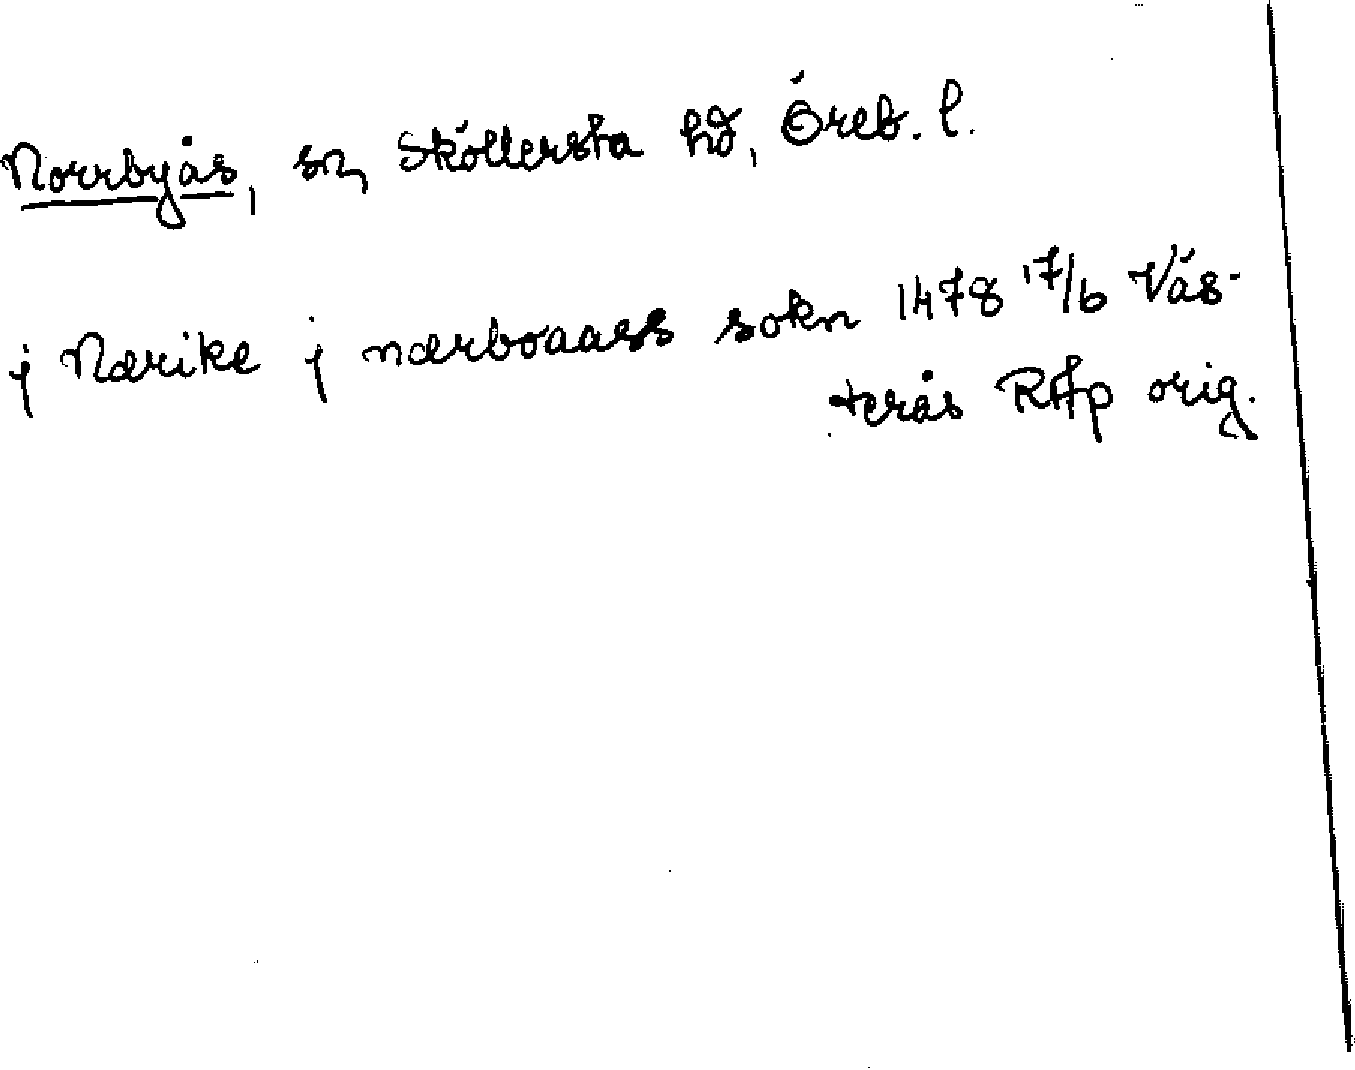 Norrbyås, sn, Sköllersta hd, Öreb. l.
j Nærike j nærboaass sokn 1478 17/6 Väs-
terås RAp orig.